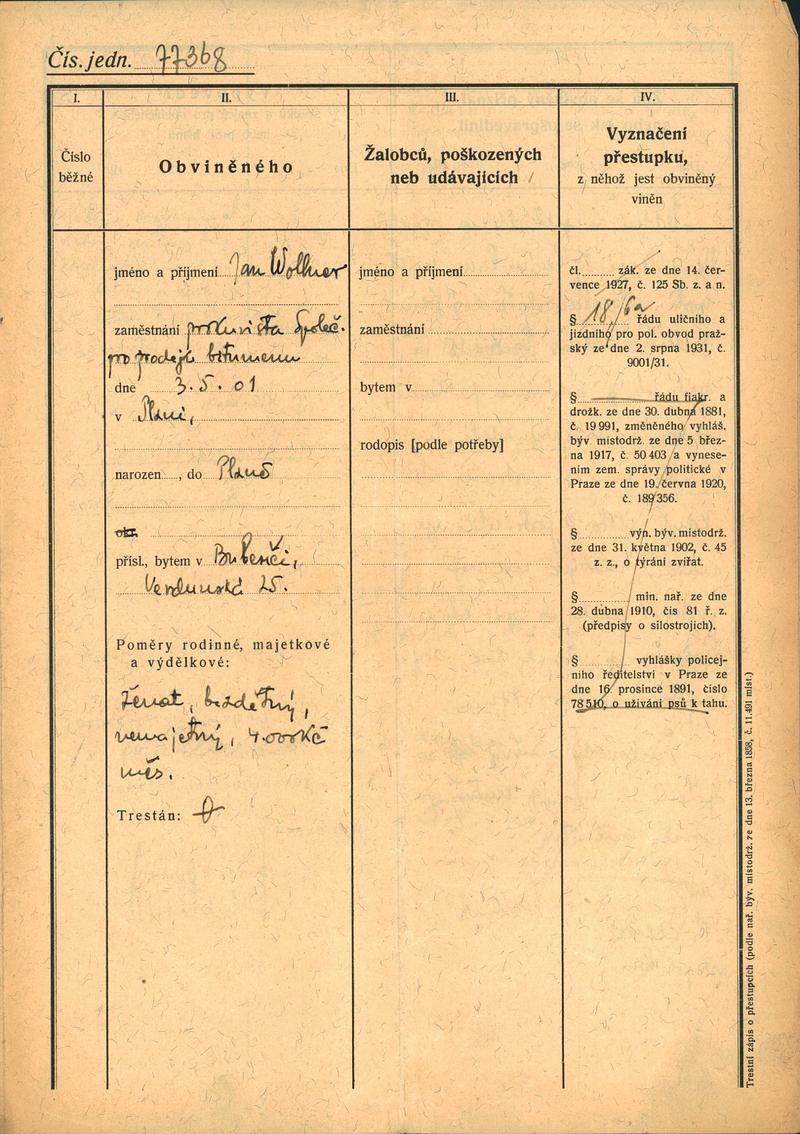 Čís. jedn. 77368
I.
Číslo
běžné
II.
Obviněného
III.
Žalobců, poškozených
neb udávajících
IV.
Vyznačení
přestupku,
z něhož jest obviněný
viněn
jméno a příjmení Jan Wollner
zaměstnání prokurista Společ.
pro prodej bitumenu
dne 3.5.01
v Plani,
narozen, do Planě
okr.
přísl., bytem v Bubenči,
Verdunská 25.
Poměry rodinné, majetkové
a výdělkové:
ženat, bezdětný,
nemajetný, 4.000 Kč
měs.
Trestán: 0
jméno a příjmení
zaměstnání
bytem v
rodopis [podle potřeby]
čl. zák. ze dne 14. čer-
vence 1927, č. 125 Sb. z. a n.
§ 18/6a řádu uličního a
jízdního pro pol. obvod praž-
ský ze dne 2. srpna 1931, č.
9001/31.
§ řádu fiakr. a
drožk. ze dne 30. dubna 1881,
č. 19 991, změněného vyhláš.
býv. místodrž. ze dne 5 břez-
na 1917, č. 50 403 a vynese-
ním zem. správy politické v
Praze ze dne 19. června 1920,
č. 189 356.
§ výn. býv. místodrž.
ze dne 31. května 1902, č. 45
z. z., o týrání zvířat.
§ min. nař. ze dne
28. dubna 1910, čís 81 ř. z.
(předpisy o silostrojích).
§ vyhlášky policej-
ního ředitelství v Praze ze
dne 16 prosince 1891, číslo
78 510, o užívání psů k tahu.
Trestní zápis o přestupcích (podle nař. býv. místodrž. ze dne 13. března 1858, č. 11.491 míst.)